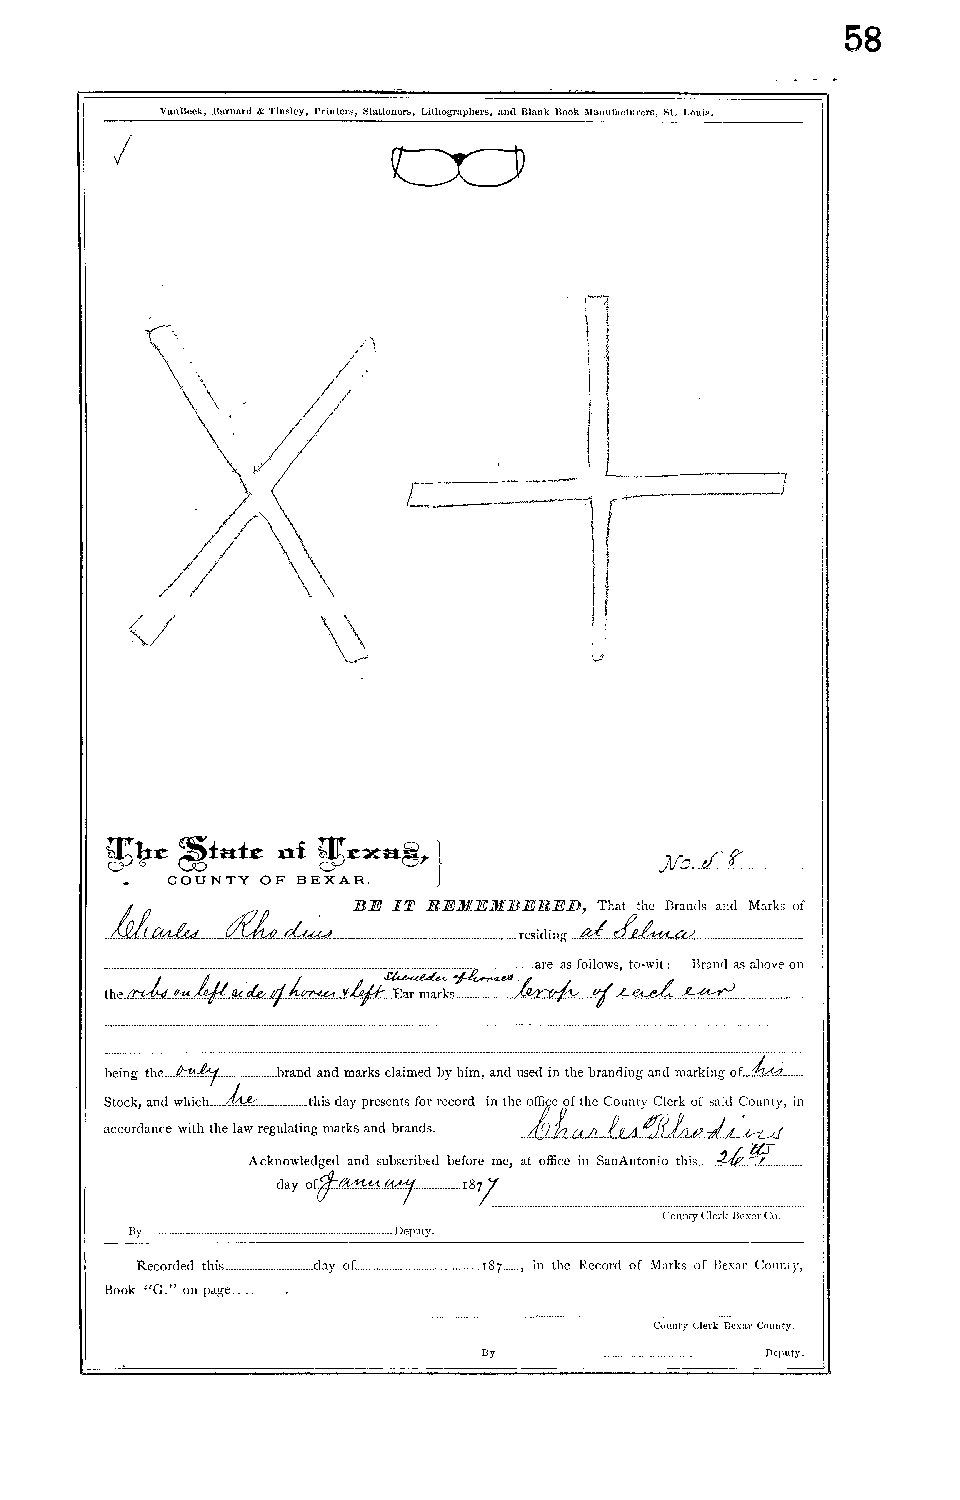 58
VanBeek, Barnard & Tinsley, Printers, Stationers, Lithographers, and Blank Book Manufacturers, St. Louis.
The State of Texas,
COUNTY OF BEXAR.
No. 58
BE IT REMEMBERED, That the Brands and Marks of
Charles Rhodius residing at Selma
are as follows, to-wit: Brand as above on
shoulder of horses
the ribs on left side of horses & left Ear marks Crop of each ear
being the only brand and marks claimed by him, and used in the branding and marking of his
Stock, and which he this day presents for record in the office of the County Clerk of said County, in
accordance with the law regulating marks and brands. Charles Rhodius
Acknowledged and subscribed before me, at office in SanAntonio this 26th
day of January 1877
County Clerk Bexar Co.
By Deputy.
Recorded this day of 187 , in the Record of Marks of Bexar County,
Book "G." on page
County Clerk Bexar County.
By Deputy.